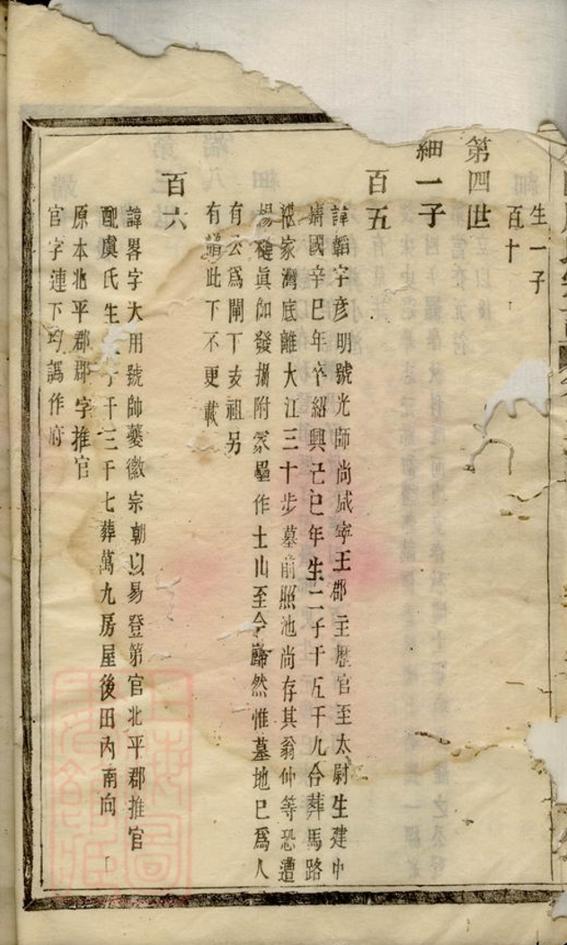 生一子
百十
第四世
細一子
百五
諱韜字彥明號光師尚咸寧王郡主歷官至太尉生建中
靖國辛巳年卒紹興己巳年生二子千五千九合葬馬路
家灣底離大江三十步墓前照池尚存其翁仲等恐遭
楊璉真伽發掘附冢壘作土山至今巋然惟墓地已為人
有公為閘下支祖另
有譜此下不更載
百六
諱畧字大用號師夔徽宗朝以易登第官北平郡推官
配虞氏生子千三千七葬萬九房屋後田內南向
原本北平郡郡字推官
官字連下均譌作府